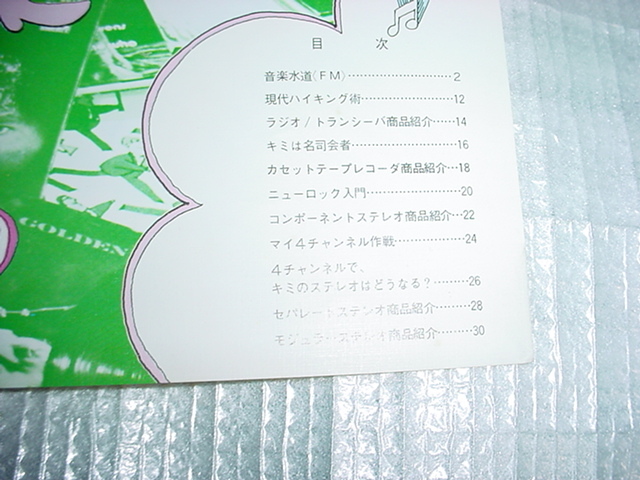 目次
音楽水道(FM)…………………………2
現代ハイキング術………………………12
ラジオ/トランシーバ商品紹介……14
キミは名司会者…………………………16
カセットテープレコーダ商品紹介…18
ニューロック入門………………………20
コンポーネントステレオ商品紹介…22
マイ4チャンネル作戦…………………24
4チャンネルで、
キミのステレオはどうなる?………26
セパレートステレオ商品紹介………28
モジュラーステレオ商品紹介………30
GOLDEN